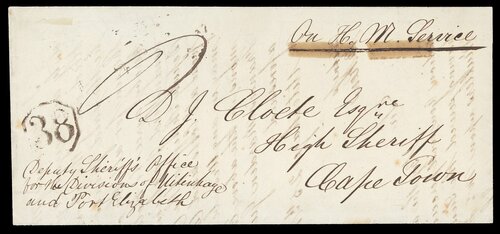 On H. M. Service
D. J. Cloete Esqre
High Sheriff
Cape Town
38
Deputy Sheriff's Office
for the Divisions of Uitenhage
and Port Elizabeth